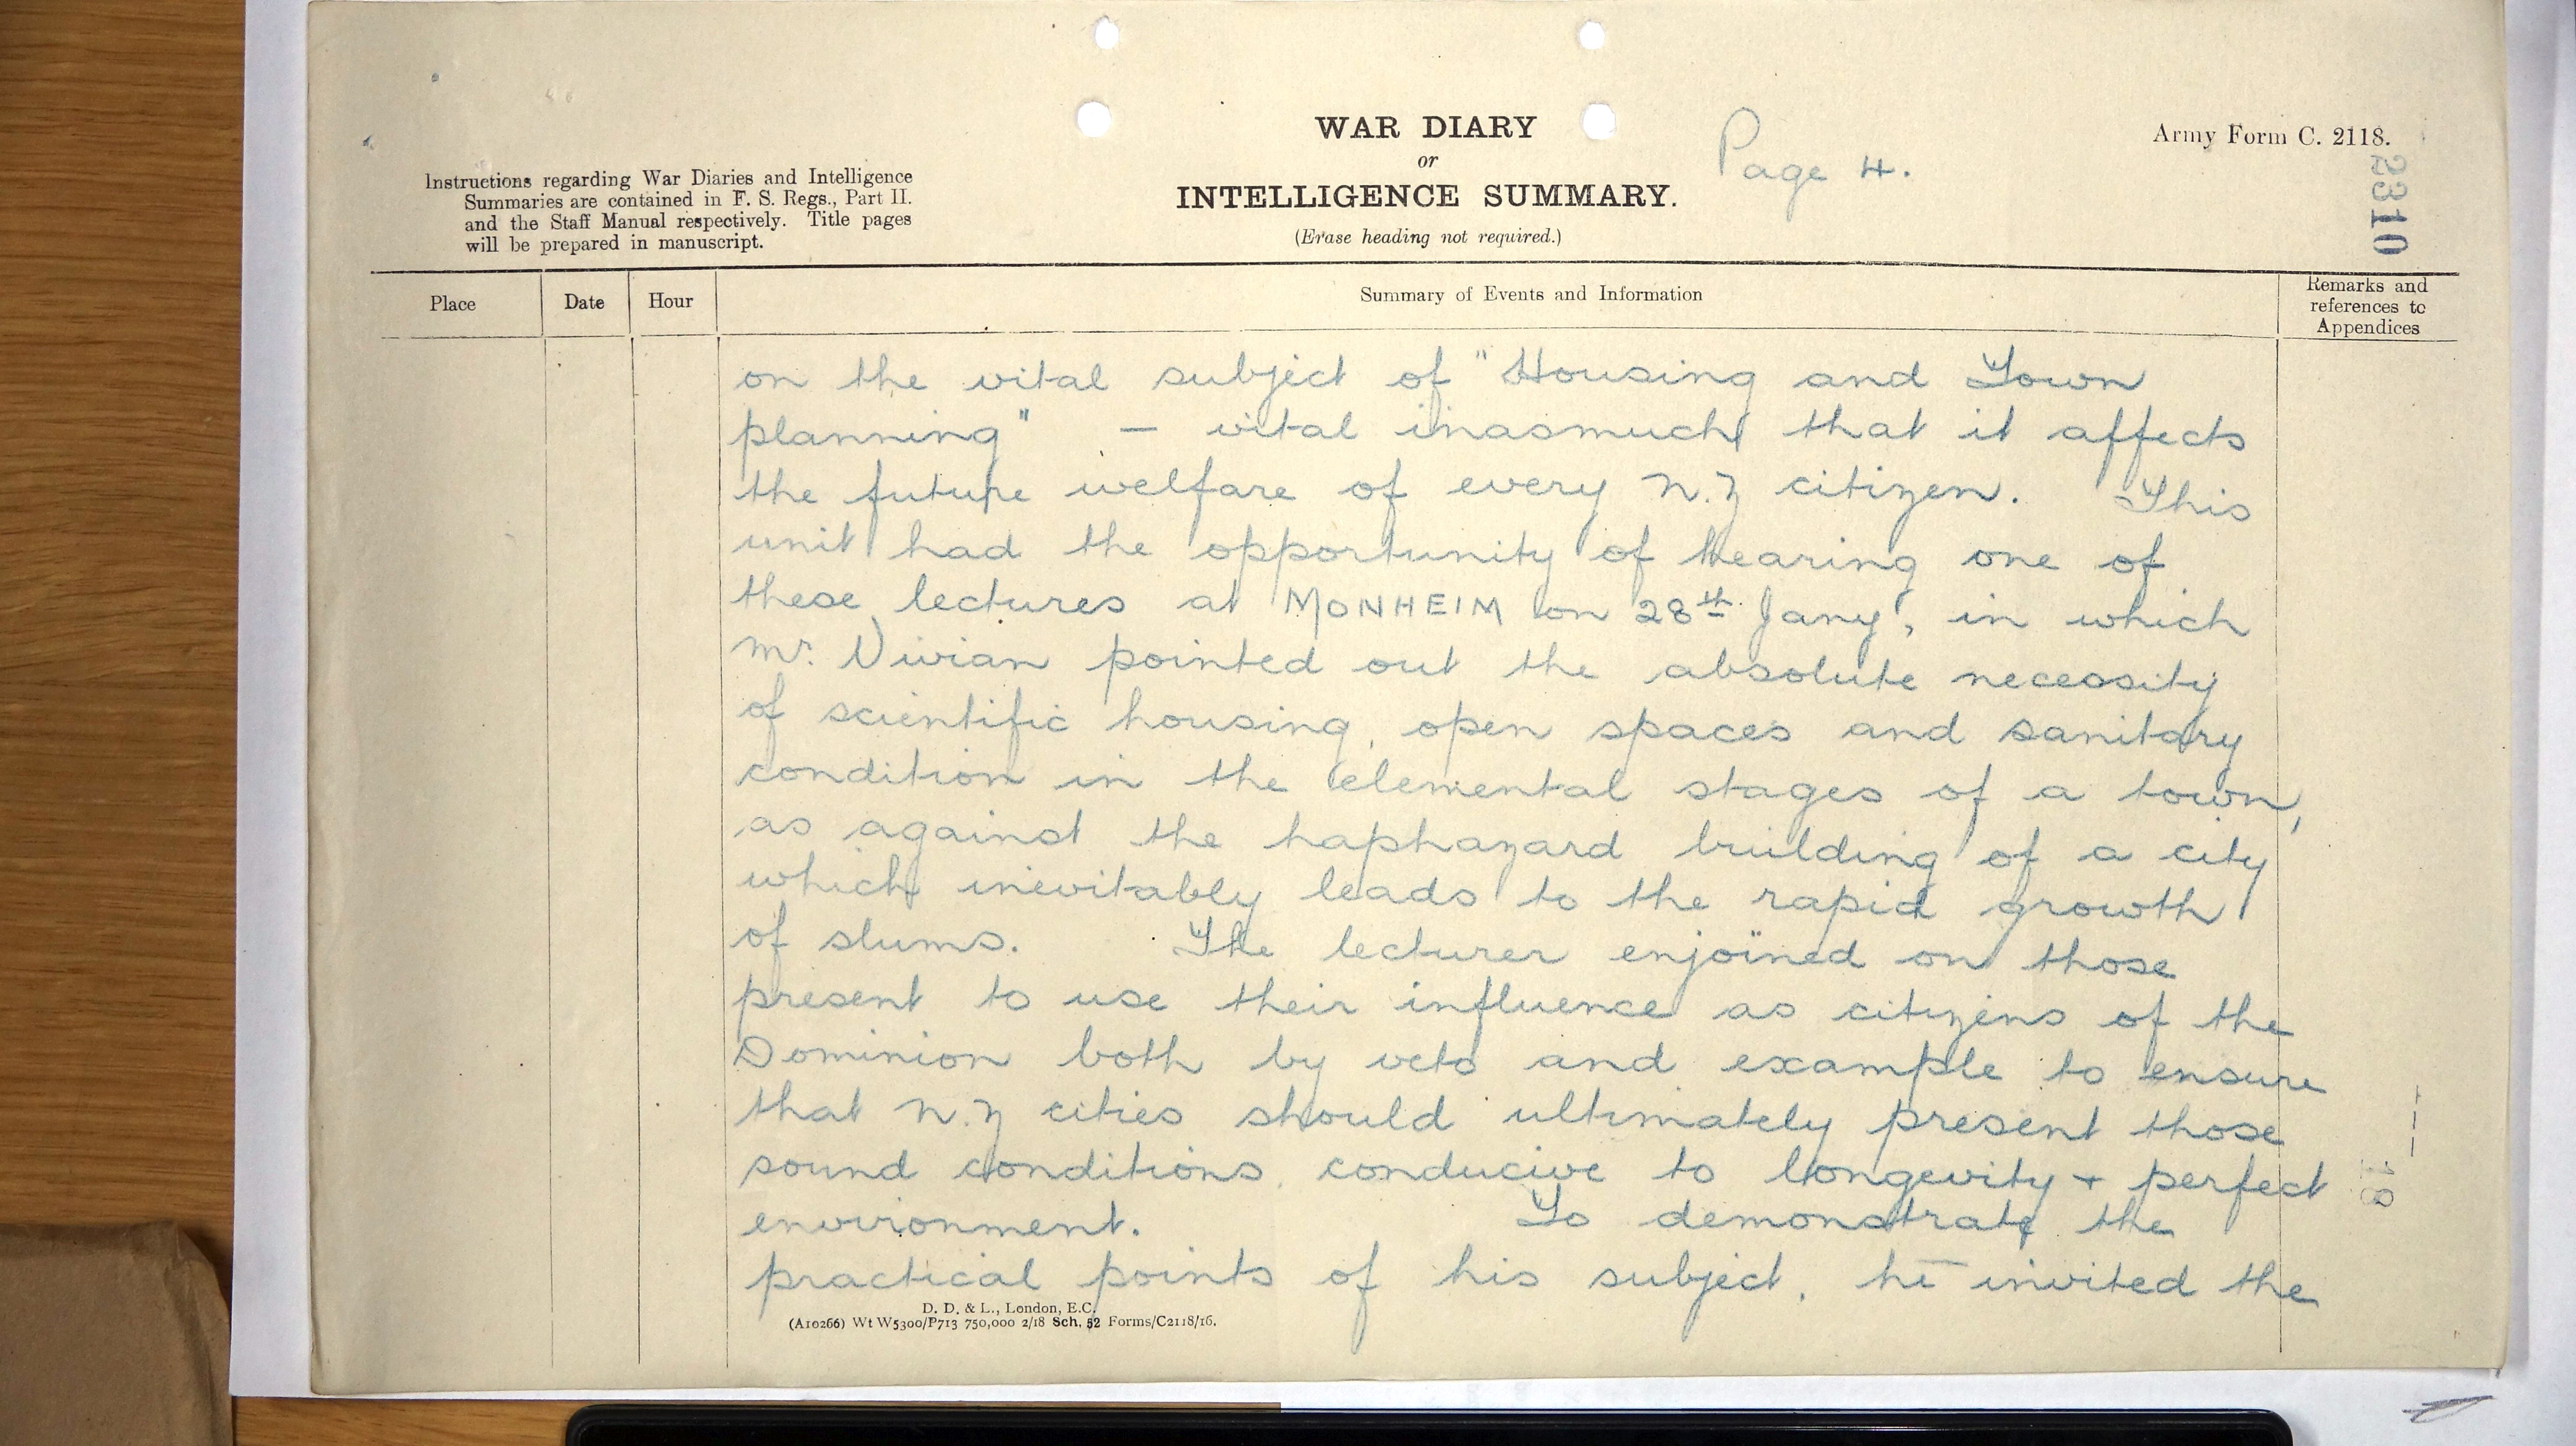 WAR DIARY
or
INTELLIGENCE SUMMARY.
(Erase heading not required.)
Page 4.
Army Form C. 2118.
2310
Instructions regarding War Diaries and Intelligence
Summaries are contained in F. S. Regs., Part II.
and the Staff Manual respectively. Title pages
will be prepared in manuscript.
Place
Date
Hour
Summary of Events and Information
Remarks and
references to
Appendices
on the vital subject of "Housing and Town
planning" — vital inasmuch that it affects
the future welfare of every N.Z citizen. This
unit had the opportunity of hearing one of
these lectures at MONHEIM on 28th Jany, in which
Mr. Vivian pointed out the absolute necessity
of scientific housing, open spaces and sanitary
condition in the elemental stages of a town,
as against the haphazard building of a city
which inevitably leads to the rapid growth
of slums. The lecturer enjoined on those
present to use their influence as citizens of the
Dominion both by veto and example to ensure
that N.Z cities should ultimately present those
sound conditions, conducive to longevity + perfect
environment. To demonstrate the
practical points of his subject, he invited the
D. D. & L., London, E.C.
(A10266) Wt W5300/P713 750,000 2/18 Sch. 52 Forms/C2118/16.